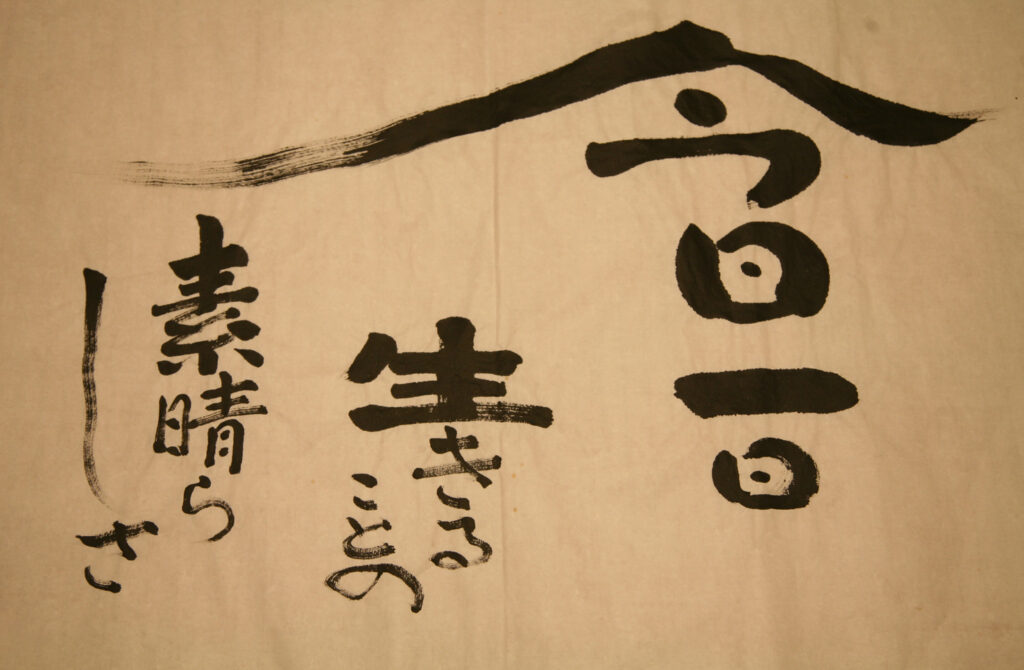 今日一日
生きる
ことの
素晴ら
しさ